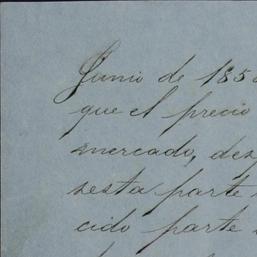 Junio de 185
que el precio
mercado, des
sesta parte
cido parte